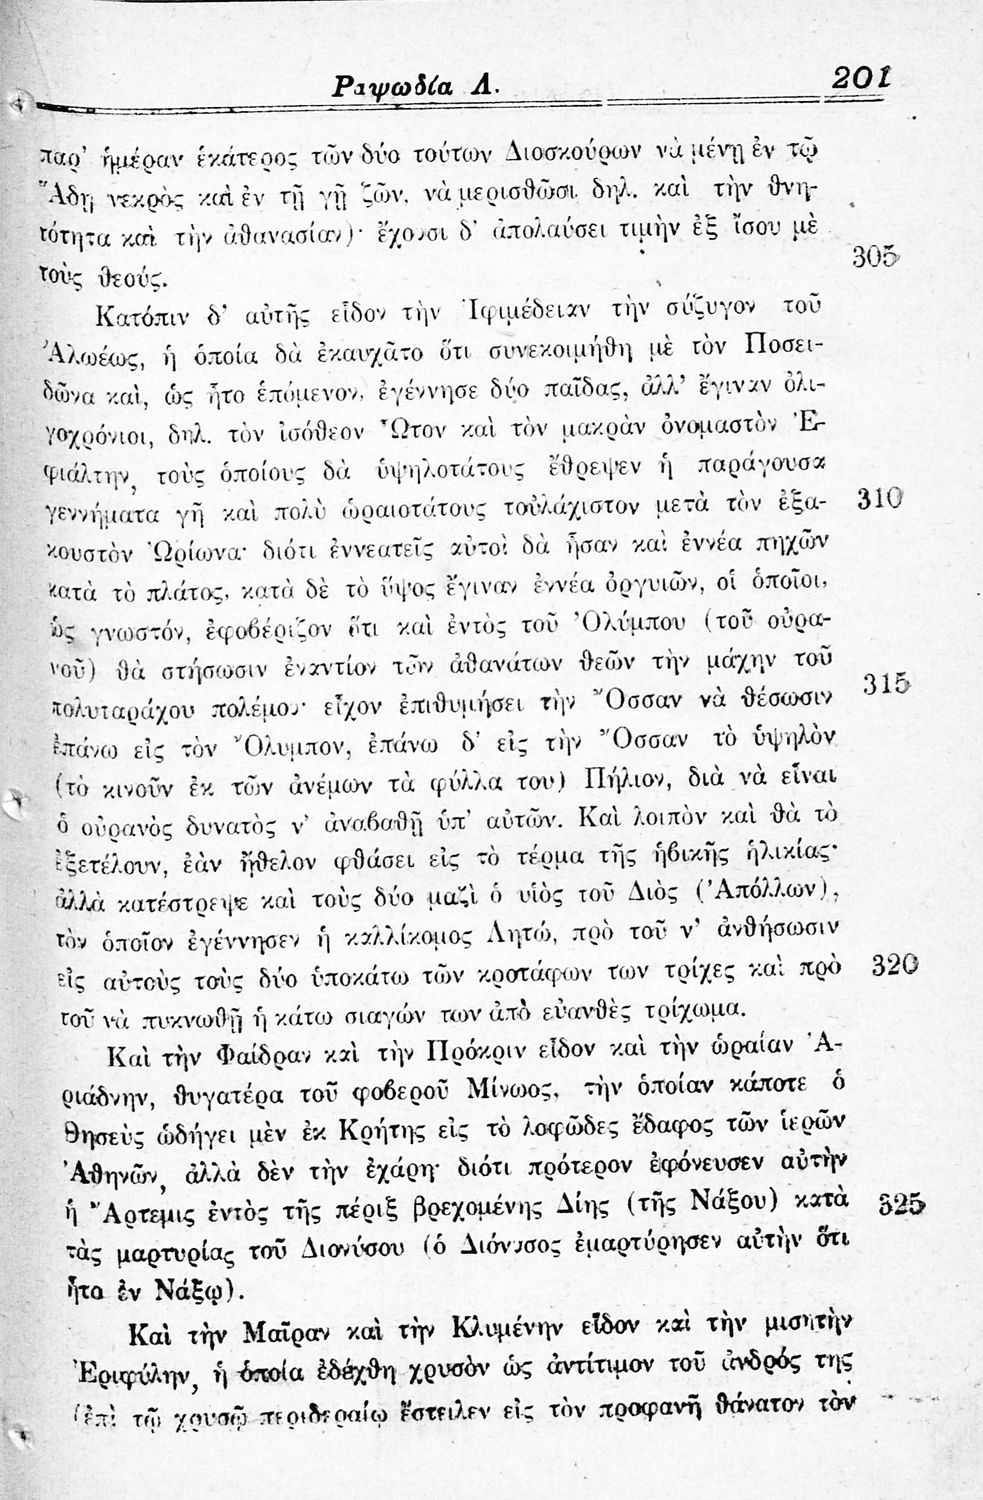 Ραψωδία Λ. 201
παρ' ἡμέραν ἑκάτερος τῶν δύο τούτων Διοσκούρων νὰ μένῃ ἐν τῷ
Ἅδῃ νεκρὸς καὶ ἐν τῇ γῇ ζῶν, νὰ μερισθῶσι δηλ. καὶ τὴν θνη-
τότητα καὶ τὴν ἀθανασίαν)· ἔχουσι δ' ἀπολαύσει τιμὴν ἐξ ἴσου μὲ
305
τοὺς θεούς.
Κατόπιν δ' αὐτῆς εἶδον τὴν Ἰφιμέδειαν τὴν σύζυγον τοῦ
Ἀλωέως, ἡ ὁποία δὰ ἐκαυχᾶτο ὅτι συνεκοιμήθη μὲ τὸν Ποσει-
δῶνα καὶ, ὡς ἦτο ἑπόμενον, ἐγέννησε δύο παῖδας, ἀλλ' ἔγιναν ὀλι-
γοχρόνιοι, δηλ. τὸν ἰσόθεον Ὦτον καὶ τὸν μακρὰν ὀνομαστὸν Ἐ-
φιάλτην, τοὺς ὁποίους δὰ ὑψηλοτάτους ἔθρεψεν ἡ παράγουσα
γεννήματα γῆ καὶ πολὺ ὡραιοτάτους τοὐλάχιστον μετὰ τὸν ἐξα- 310
κουστὸν Ὠρίωνα· διότι ἐννεατεῖς αὐτοὶ δὰ ἦσαν καὶ ἐννέα πηχῶν
κατὰ τὸ πλάτος, κατὰ δὲ τὸ ὕψος ἔγιναν ἐννέα ὀργυιῶν, οἱ ὁποῖοι,
ὡς γνωστόν, ἐφοβέριζον ὅτι καὶ ἐντὸς τοῦ Ὀλύμπου (τοῦ οὐρα-
νοῦ) θὰ στήσωσιν ἐναντίον τῶν ἀθανάτων θεῶν τὴν μάχην τοῦ
πολυταράχου πολέμου· εἶχον ἐπιθυμήσει τὴν Ὄσσαν νὰ θέσωσιν 315
ἐπάνω εἰς τὸν Ὄλυμπον, ἐπάνω δ' εἰς τὴν Ὄσσαν τὸ ὑψηλὸν
(τὸ κινοῦν ἐκ τῶν ἀνέμων τὰ φύλλα του) Πήλιον, διὰ νὰ εἶναι
ὁ οὐρανὸς δυνατὸς ν' ἀναβαθῇ ὑπ' αὐτῶν. Καὶ λοιπὸν καὶ θὰ τὸ
ἐξετέλουν, ἐὰν ἤθελον φθάσει εἰς τὸ τέρμα τῆς ἡβικῆς ἡλικίας·
ἀλλὰ κατέστρεψε καὶ τοὺς δύο μαζὶ ὁ υἱὸς τοῦ Διὸς (Ἀπόλλων),
τὸν ὁποῖον ἐγέννησεν ἡ καλλίκομος Λητώ, πρὸ τοῦ ν' ἀνθήσωσιν
εἰς αὐτοὺς τοὺς δύο ὑποκάτω τῶν κροτάφων των τρίχες καὶ πρὸ 320
τοῦ νὰ πυκνωθῇ ἡ κάτω σιαγών των ἀπὸ εὐανθὲς τρίχωμα.
Καὶ τὴν Φαίδραν καὶ τὴν Πρόκριν εἶδον καὶ τὴν ὡραίαν Ἀ-
ριάδνην, θυγατέρα τοῦ φοβεροῦ Μίνωος, τὴν ὁποίαν κάποτε ὁ
Θησεὺς ὡδήγει μὲν ἐκ Κρήτης εἰς τὸ λοφῶδες ἔδαφος τῶν ἱερῶν
Ἀθηνῶν, ἀλλὰ δὲν τὴν ἐχάρη· διότι πρότερον ἐφόνευσεν αὐτὴν
ἡ Ἄρτεμις ἐντὸς τῆς πέριξ βρεχομένης Δίης (τῆς Νάξου) κατὰ 325
τὰς μαρτυρίας τοῦ Διονύσου (ὁ Διόνυσος ἐμαρτύρησεν αὐτὴν ὅτι
ἦτο ἐν Νάξῳ).
Καὶ τὴν Μαῖραν καὶ τὴν Κλυμένην εἶδον καὶ τὴν μισητὴν
Ἐριφύλην, ἡ ὁποία ἐδέχθη χρυσὸν ὡς ἀντίτιμον τοῦ ἀνδρός της
(ἐπὶ τῷ χρυσῷ περιδεραίῳ ἔστειλεν εἰς τὸν προφανῆ θάνατον τὸν